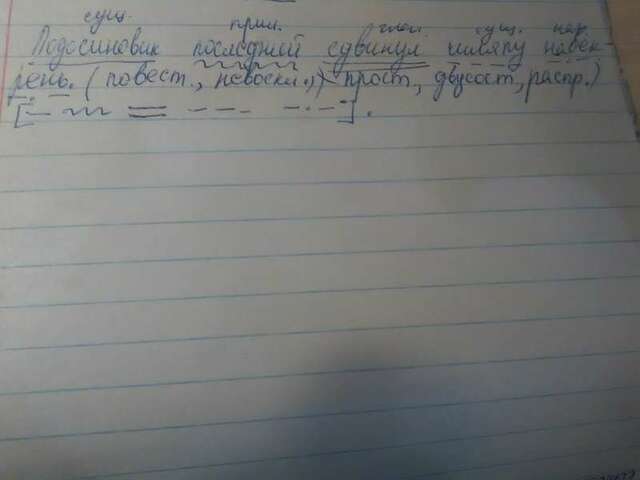 сущ. прил. глаг. сущ. нар.
Подосиновик последний сдвинул шляпу набек-
рень. (повест., невоскл., прост, двусост, распр.)